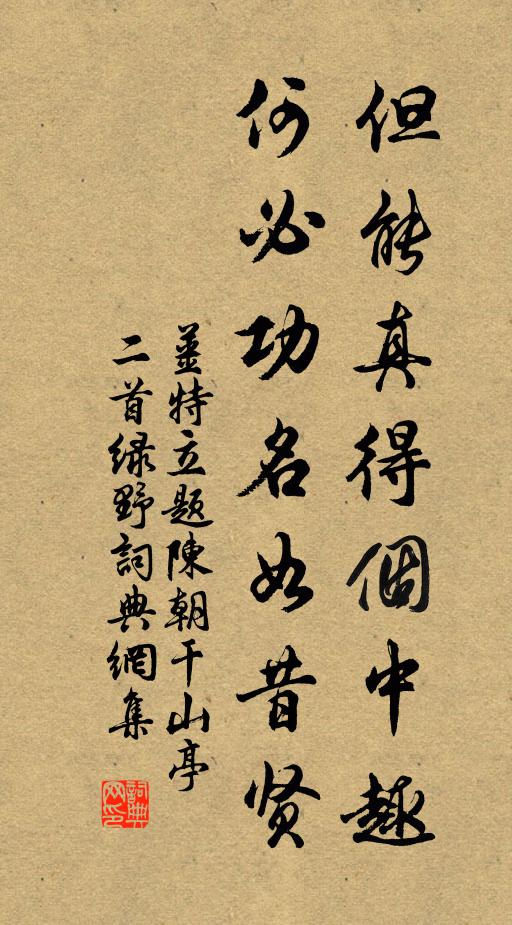 但能真得個中趣
何必功名如昔贤
姜特立题陳朝干山亭
二首绿野詞典網集
詞典网印